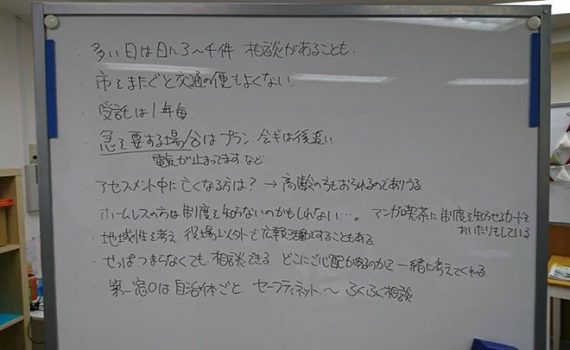 ・多い日は日に3〜4件 相談があることも.
・市をまたぐと交通の便もよくない.
・受託は1年毎.
・急を要する場合はプラン、会ギは後追い
電気が止まってます、など
・アセスメント中に亡くなる方は? → 高齢の方もおられるのでありうる
・ホームレスの方は制度を知らないのかもしれない…。マンガ喫茶に制度を知らせるカードを
おいたりもしている
・地域性を考え、役場以外で広報活動をすることもある
・せっぱつまらなくても相談できる どこに心配があるのかを一緒に考えてくれる
・第一窓口は自治体ごと セーフティネット〜 相談